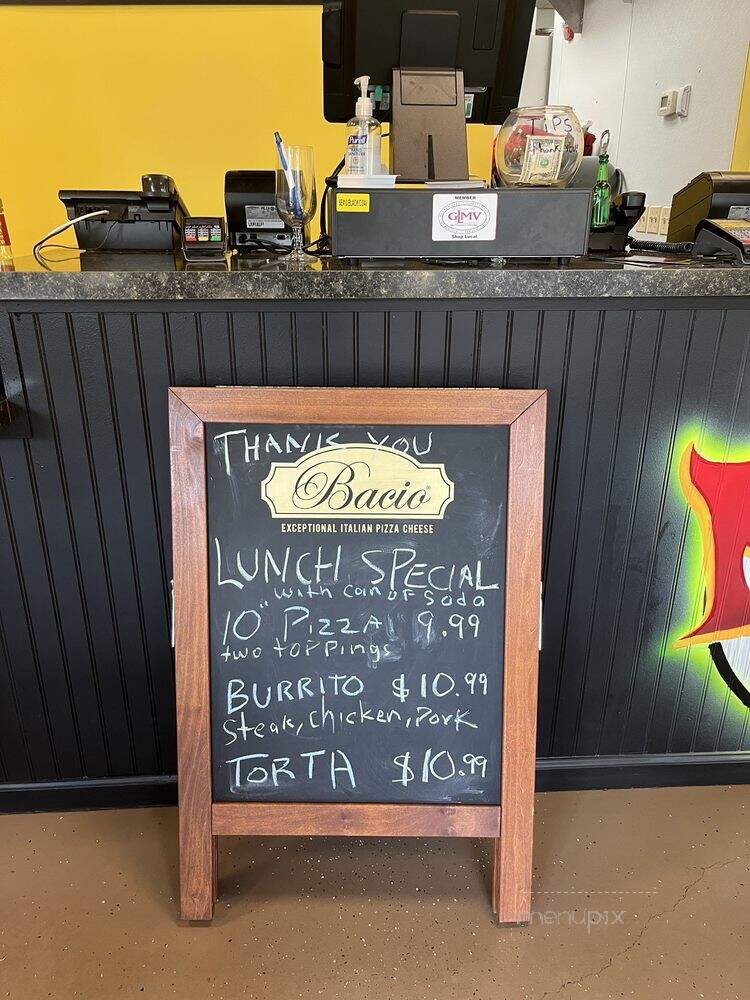 TIPS
Thank you
Purell
MEMBER
GLMV
Shop Local
THANK YOU
Bacio
EXCEPTIONAL ITALIAN PIZZA CHEESE
LUNCH SPECIAL
with can of Soda
10" PIZZA 9.99
two toppings
BURRITO $10.99
Steak, chicken, Pork
TORTA $10.99
menupix